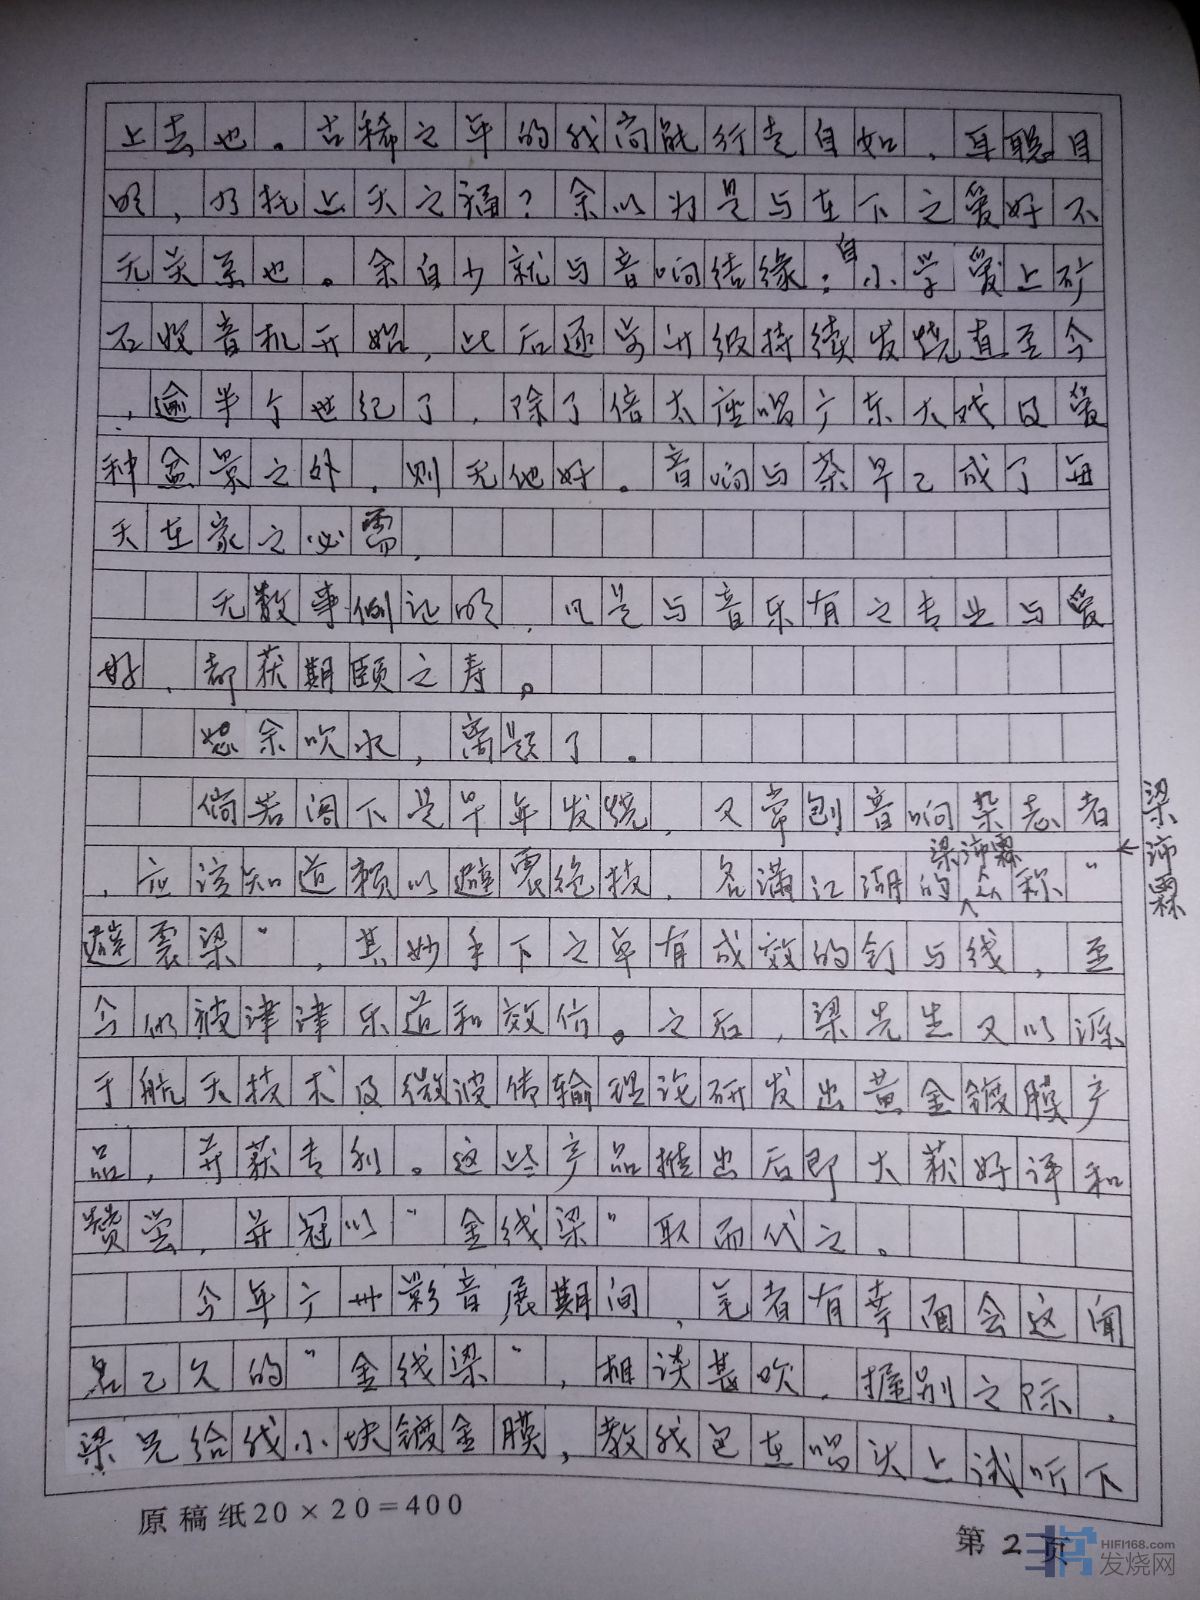 上去也。古稀之年的我尚能行走自如，耳聪目
明，乃托上天之福？余以为是与在下之爱好不
无关系也。余自少就与音响结缘：自小学爱上矿
石收音机开始，此后逐步升级持续发烧直至今
，逾半个世纪了，除了偕太座唱广东大戏及爱
种盆景之外，则无他好。音响与茶早已成了每
天在家之必需，
无数事例证明，凡是与音乐有之专业与爱
好，都获期颐之寿。
恕余吹水，离题了。
倘若阁下是早年发烧，又常刨音响杂志者
，应该知道赖以避震绝技，名满江湖的梁沛霖人称“
梁沛霖
避震梁”，其妙手下之卓有成效的钉与线，至
今仍被津津乐道和效仿。之后，梁先生又以源
于航天技术及微波传输理论研发出黄金镀膜产
品，并获专利。这些产品推出后即大获好评和
赞尝，并冠以“金线梁”取而代之。
今年广州影音展期间，笔者有幸面会这闻
名已久的“金线梁”，相谈甚欢，握别之际，
梁兄给我小块镀金膜，教我包在唱头上试听下
原稿纸20×20=400
第2页
HIFI168.com
发烧网